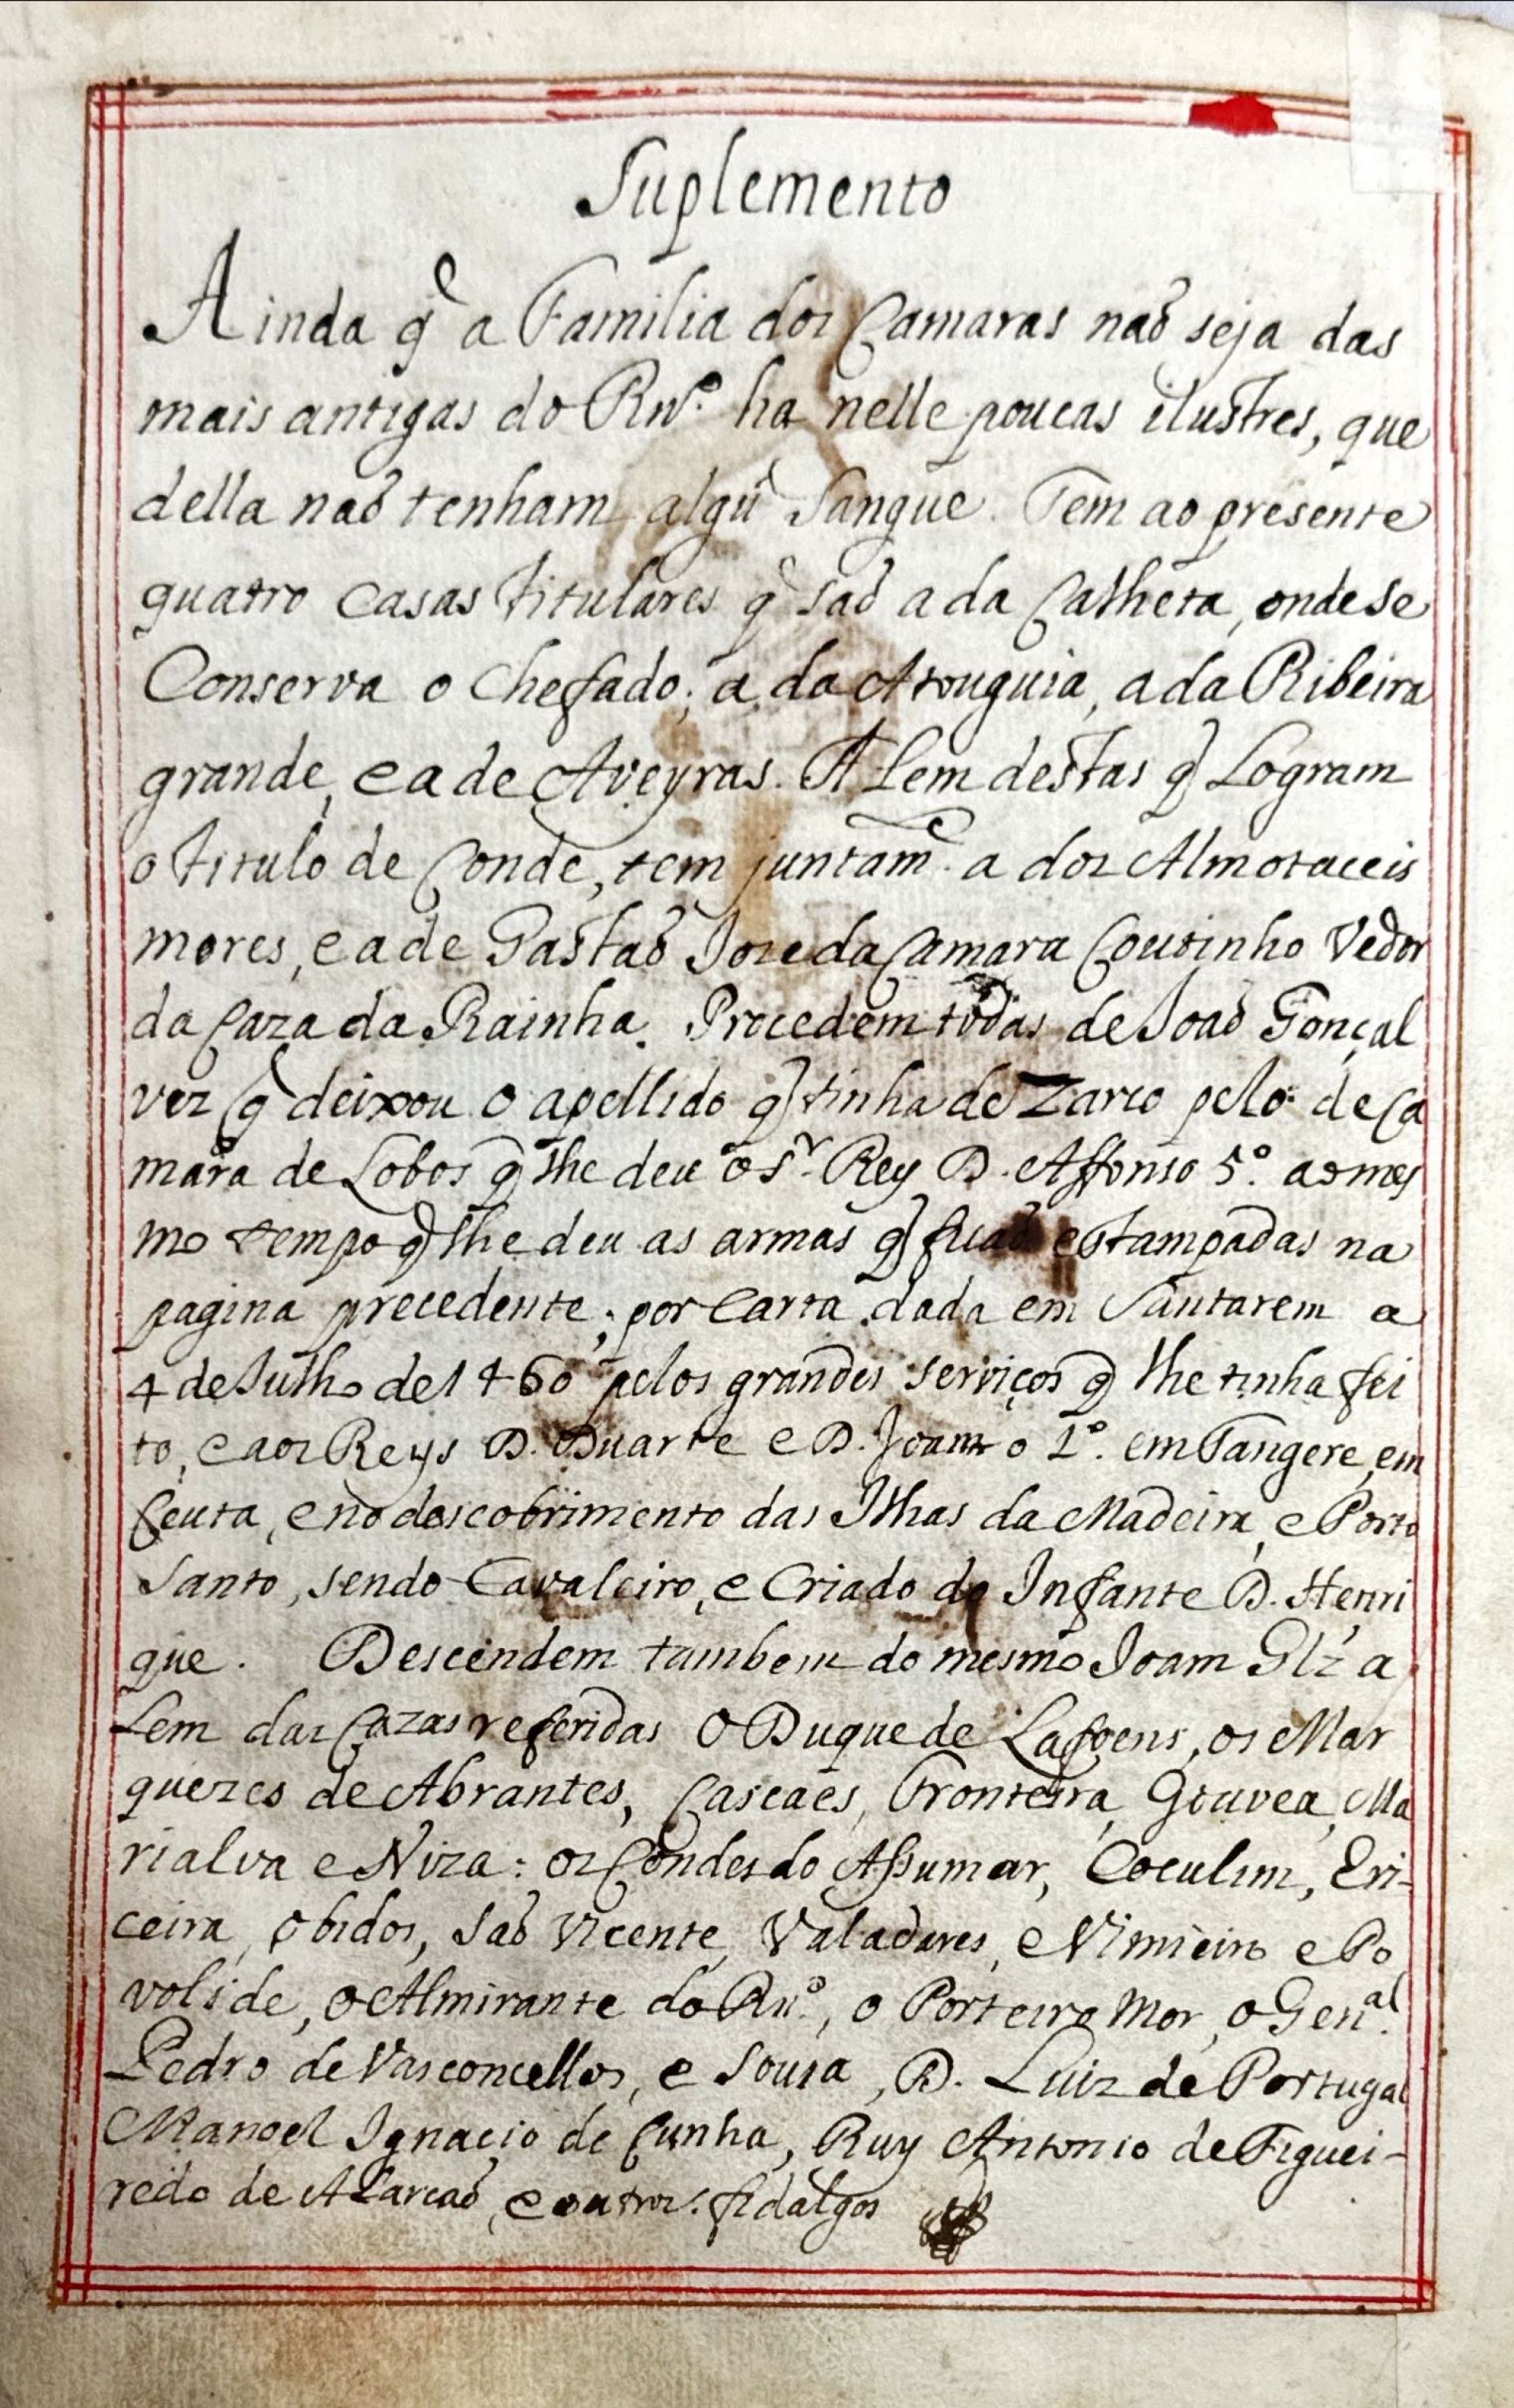 Suplemento
Ainda q̃ a Familia dos Camaras naõ seja das
mais antigas do Rn.º ha nelle poucas ilustres, que
della naõ tenham algũ Sangue. Tem ao presente
quatro casas titulares q̃ saõ a da Calheta, onde se
Conserva o Chefado; a da Atouguia, a da Ribeira
grande, e a de Aveyras. A Lem destas q̃ Logram
o titulo de Conde, tem juntam.e a dos Almotaceis
mores, e a de Gastaõ Joze da Camara Coutinho Vedor
da Caza da Rainha. Procedem todas de Joaõ Gonçal
vez q̃ deixou o apellido q̃ tinha de Zarco pelo de Ca
mara de Lobos q̃ lhe deu o Sr. Rey D. Affonso 5.º ao mes
mo tempo q̃ lhe deu as armas q̃ ficaõ estampadas na
pagina precedente; por Carta dada em Santarem a
4 de Julho de 1460 pelos grandes serviços q̃ lhe tinha fei
to, e aos Reys D. Duarte e D. Joam o 1.º em Tangere, em
Ceuta, e no descobrimento das Ilhas da Madeira, e Porto
Santo, sendo Cavaleiro, e Criado do Infante D. Henri
que. Descendem tambem do mesmo Joam Glz' a
Lem das Cazas referidas o Duque de Lafoens, os Mar
quezes de Abrantes, Cascaes, Fronteira, Gouvea, Ma
rialva e Niza: os Condes do Assumar, Coculim, Eri-
ceira, Obidos, Saõ Vicente, Valadares, e Vimieiro e Po
volide, o Almirante do Rn.º, o Porteiro Mor, o Gen.al
Pedro de Vasconcellos, e Sousa, D. Luiz de Portugal
Manoel Ignacio de Cunha, Ruy Antonio de Figuei-
redo de Alarcaõ, e outros fidalgos